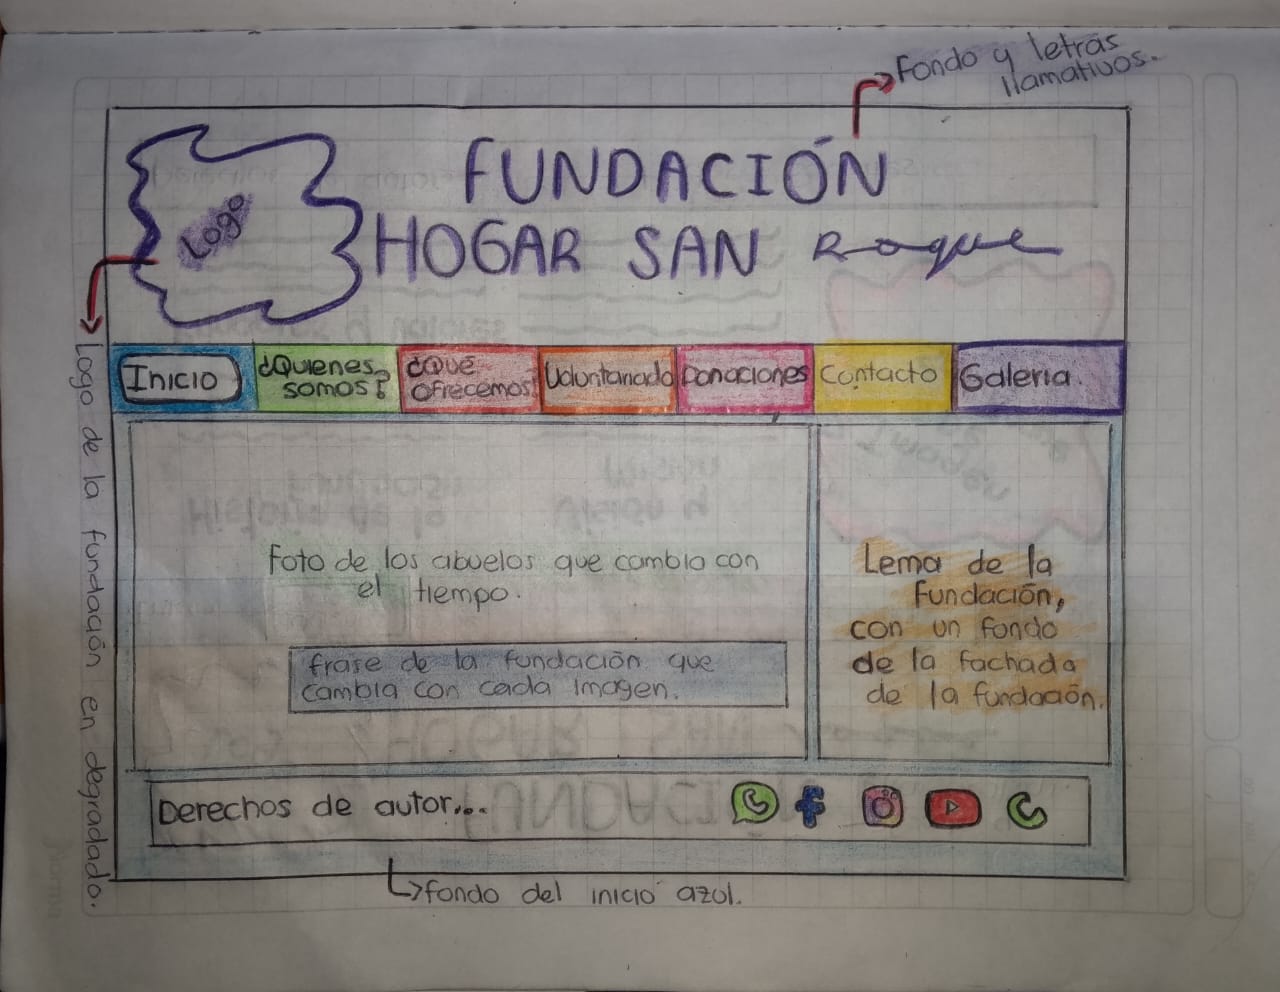 Fondo y letras
llamativos.
FUNDACIÓN
HOGAR SAN Roque
Logo
Logo de la fundación en degradado.
Inicio
¿Quienes
somos?
¿Qué
ofrecemos?
Voluntariado
Donaciones
Contacto
Galeria.
Foto de los abuelos que cambia con
el tiempo.
frase de la fundación que
cambia con cada imagen.
Lema de la
Fundación,
con un fondo
de la fachada
de la fundación.
Derechos de autor...
fondo del inicio azul.